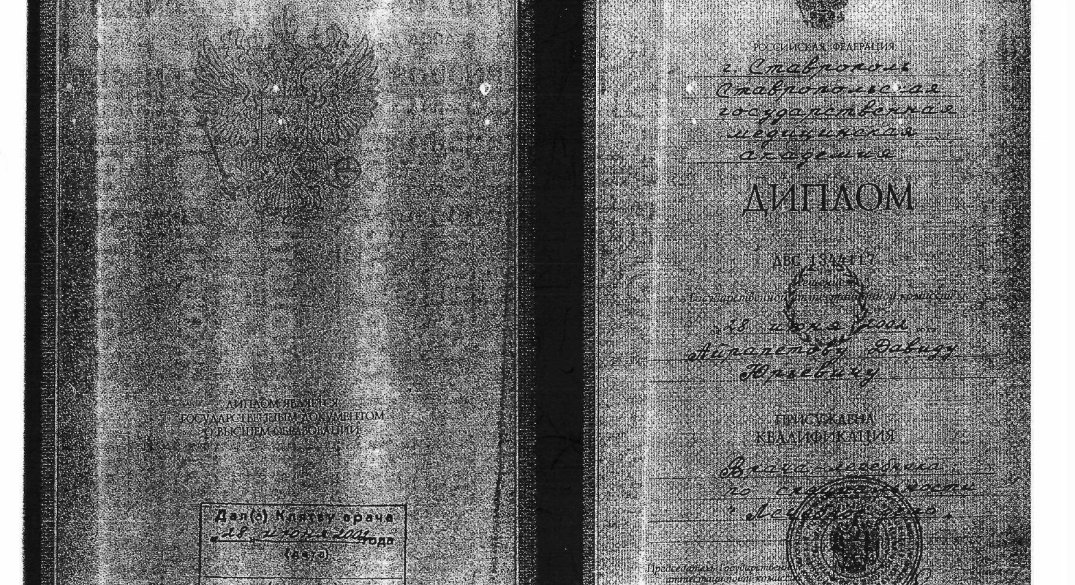 ДИПЛОМ ЯВЛЯЕТСЯ
ГОСУДАРСТВЕННЫМ ДОКУМЕНТОМ
О ВЫСШЕМ ОБРАЗОВАНИИ
Дал(а) Клятву врача
"28" июня 2001 года
(дата)
РОССИЙСКАЯ ФЕДЕРАЦИЯ
г. Ставрополь
Ставропольская
государственная
медицинская
академия
ДИПЛОМ
ДВС
Государственной аттестационной комиссии
"28" июня 2001
Айрапетову Давиду
Юрьевичу
ПРИСУЖДЕНА
КВАЛИФИКАЦИЯ
Врача-лечебника
по специальности
"Лечебное дело"
Председатель Государственной
аттестационной комиссии